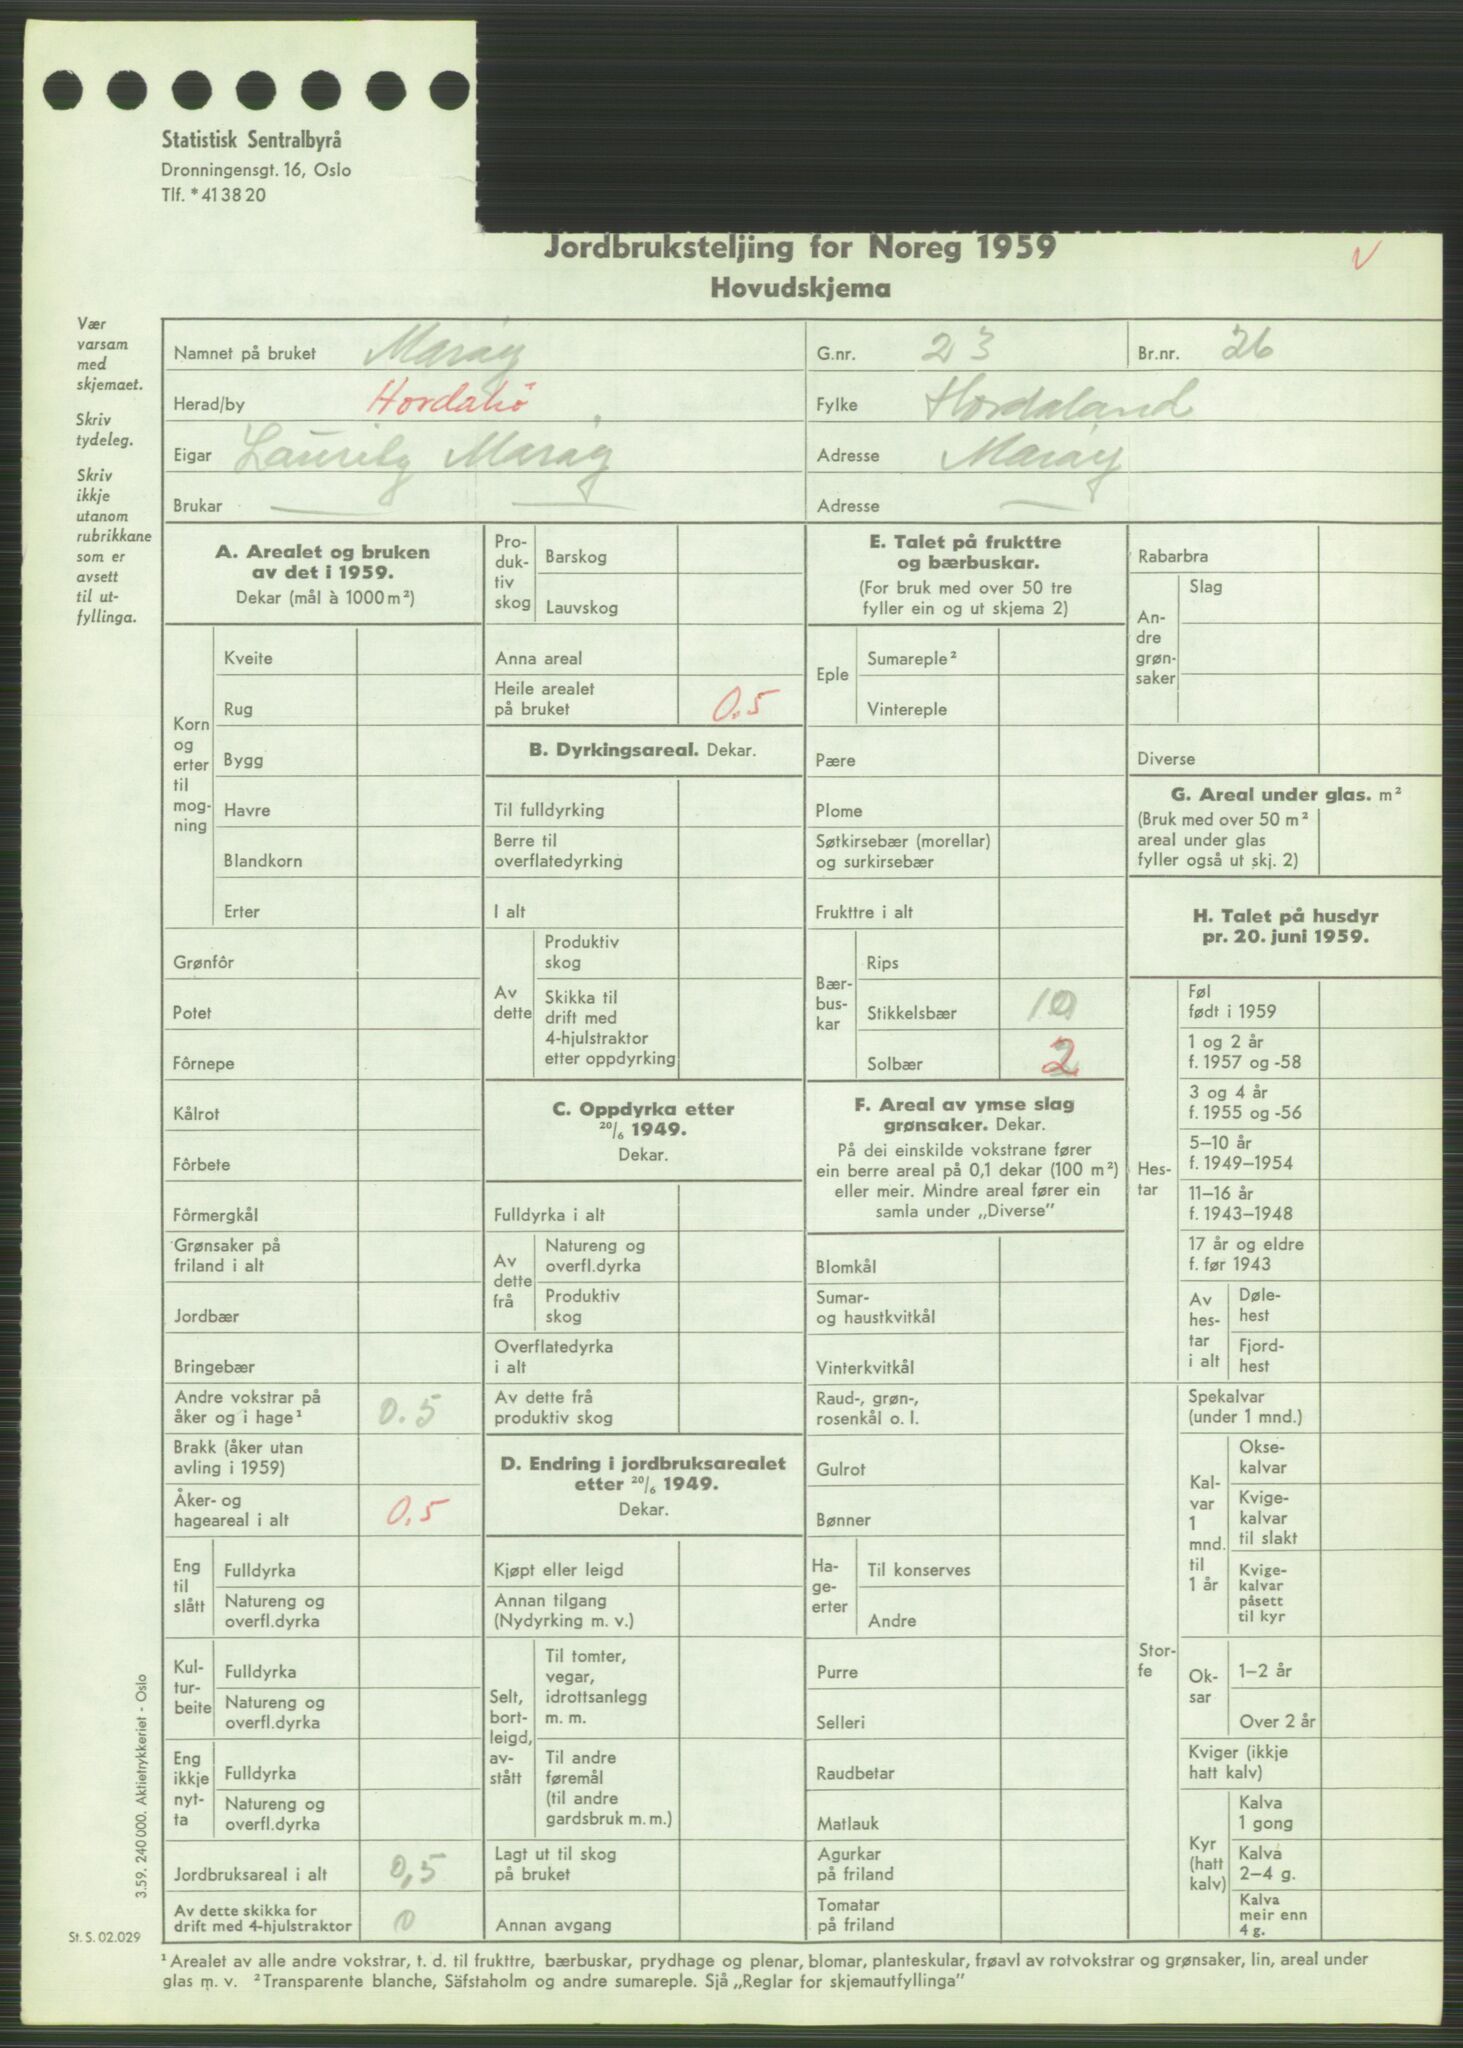 Statistisk Sentralbyrå
Dronningensgt. 16, Oslo
Tlf. * 41 38 20
Jordbruksteljing for Noreg 1959
Hovudskjema
V
Vær
varsam
med
skjemaet.
Skriv
tydeleg.
Skriv
ikkje
utanom
rubrikkane
som er
avsett
til ut-
fyllinga.
Namnet på bruket
G.nr. 23
Br.nr. 26
Herad/by
Fylke Hordaland
Eigar
Adresse
Brukar —— ——
Adresse ——
A. Arealet og bruken
av det i 1959.
Dekar (mål à 1000 m²)
Korn
og
erter
til
mog-
ning
Kveite
Rug
Bygg
Havre
Blandkorn
Erter
Grønfôr
Potet
Fôrnepe
Kålrot
Fôrbete
Fôrmergkål
Grønsaker på
friland i alt
Jordbær
Bringebær
Andre vokstrar på
åker og i hage¹ 0.5
Brakk (åker utan
avling i 1959)
Åker- og
hageareal i alt 0.5
Eng
til
slått
Fulldyrka
Natureng og
overfl.dyrka
Kul-
tur-
beite
Fulldyrka
Natureng og
overfl.dyrka
Eng
ikkje
nyt-
ta
Fulldyrka
Natureng og
overfl.dyrka
Jordbruksareal i alt 0,5
Av dette skikka for
drift med 4-hjulstraktor 0
Pro-
duk-
tiv
skog
Barskog
Lauvskog
Anna areal
Heile arealet
på bruket 0.5
B. Dyrkingsareal. Dekar.
Til fulldyrking
Berre til
overflatedyrking
I alt
Av
dette
Produktiv
skog
Skikka til
drift med
4-hjulstraktor
etter oppdyrking
C. Oppdyrka etter
20/6 1949.
Dekar.
Fulldyrka i alt
Av
dette
frå
Natureng og
overfl.dyrka
Produktiv
skog
Overflatedyrka
i alt
Av dette frå
produktiv skog
D. Endring i jordbruksarealet
etter 20/6 1949.
Dekar.
Kjøpt eller leigd
Annan tilgang
(Nydyrking m. v.)
Selt,
bort-
leigd,
av-
stått
Til tomter,
vegar,
idrottsanlegg
m. m.
Til andre
føremål
(til andre
gardsbruk m. m.)
Lagt ut til skog
på bruket
Annan avgang
E. Talet på frukttre
og bærbuskar.
(For bruk med over 50 tre
fyller ein og ut skjema 2)
Eple
Sumareple²
Vintereple
Pære
Plome
Søtkirsebær (morellar)
og surkirsebær
Frukttre i alt
Bær-
bus-
kar
Rips
Stikkelsbær 10
Solbær 2
F. Areal av ymse slag
grønsaker. Dekar.
På dei einskilde vokstrane fører
ein berre areal på 0,1 dekar (100 m²)
eller meir. Mindre areal fører ein
samla under „Diverse”
Blomkål
Sumar-
og haustkvitkål
Vinterkvitkål
Raud-, grøn-,
rosenkål o. l.
Gulrot
Bønner
Ha-
ge-
erter
Til konserves
Andre
Purre
Selleri
Raudbetar
Matlauk
Agurkar
på friland
Tomatar
på friland
Rabarbra
An-
dre
grøn-
saker
Slag
Diverse
G. Areal under glas. m²
(Bruk med over 50 m²
areal under glas
fyller også ut skj. 2)
H. Talet på husdyr
pr. 20. juni 1959.
Hes-
tar
Føl
født i 1959
1 og 2 år
f. 1957 og -58
3 og 4 år
f. 1955 og -56
5–10 år
f. 1949–1954
11–16 år
f. 1943–1948
17 år og eldre
f. før 1943
Av
hes-
tar
i alt
Døle-
hest
Fjord-
hest
Stor-
fe
Spekalvar
(under 1 mnd.)
Kal-
var
1
mnd.
til
1 år
Okse-
kalvar
Kvige-
kalvar
til slakt
Kvige-
kalvar
påsett
til kyr
Ok-
sar
1–2 år
Over 2 år
Kviger (ikkje
hatt kalv)
Kyr
(hatt
kalv)
Kalva
1 gong
Kalva
2–4 g.
Kalva
meir enn
4 g.
3.59. 240 000. Aktietrykkeriet - Oslo
St. S. 02.029
¹ Arealet av alle andre vokstrar, t. d. til frukttre, bærbuskar, prydhage og plenar, blomar, planteskular, frøavl av rotvokstrar og grønsaker, lin, areal under
glas m. v. ² Transparente blanche, Säfstaholm og andre sumareple. Sjå „Reglar for skjemautfyllinga”